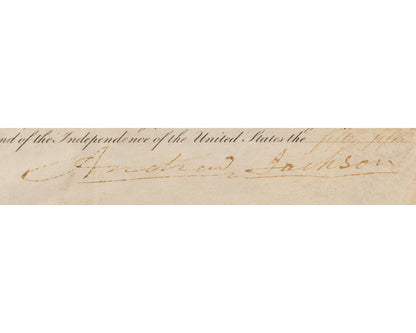 nd of the Independence of the United States the fifty fifth
Andrew Jackson